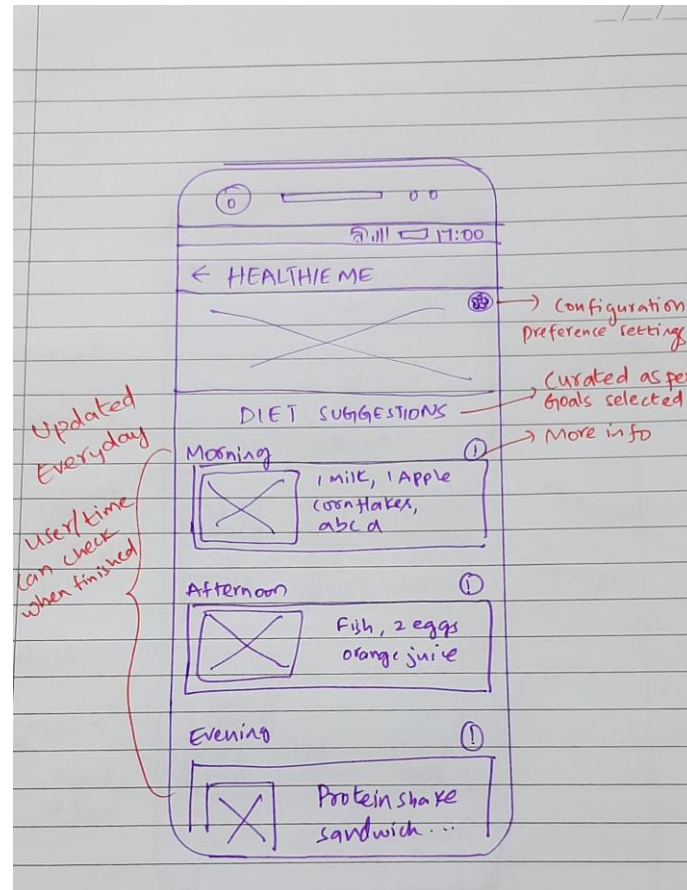 __/__/__
17:00
← HEALTHIE ME
Configuration
preference settings
DIET SUGGESTIONS
Curated as per
Goals selected
Updated
Everyday
User/time
can check
when finished
Morning
More info
1 Milk, 1 Apple
cornflakes,
abcd
Afternoon
Fish, 2 eggs
orange juice
Evening
Protein shake
sandwich...